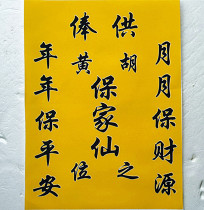 供俸
胡黄
保家仙
之位
月月保财源
年年保平安